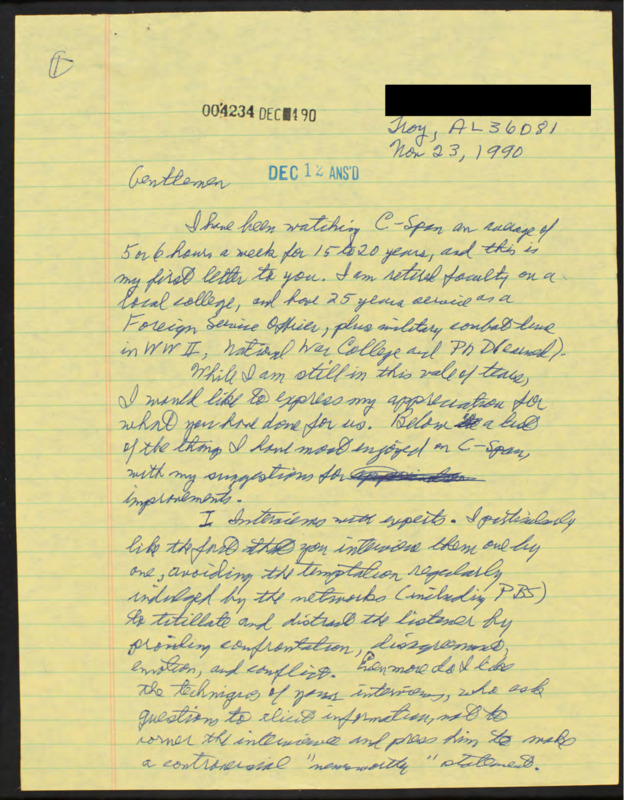 1
004234 DEC 4 90
Troy, AL 36081
Nov 23, 1990
Gentlemen
DEC 12 ANS'D
I have been watching C-Span an average of
5 or 6 hours a week for 15 to 20 years, and this is
my first letter to you. I am retired faculty on a
local college, and have 25 years service as a
Foreign Service Officer, plus military combat time
in WW II, National War College and Ph D (earned).
While I am still in this vale of tears,
I would like to express my appreciation for
what you have done for us. Below is a list
of the things I have most enjoyed on C-Span,
with my suggestions for
improvements.
I Interviews with experts. I particularly
like the fact that you interview them one by
one, avoiding the temptation regularly
indulged by the networks (including PBS)
to titillate and distract the listener by
providing confrontation, disagreement,
emotion, and conflict. Even more do I like
the techniques of your interviews, who ask
questions to elicit information, not to
corner the interviewee and press him to make
a controversial "newsworthy" statement.